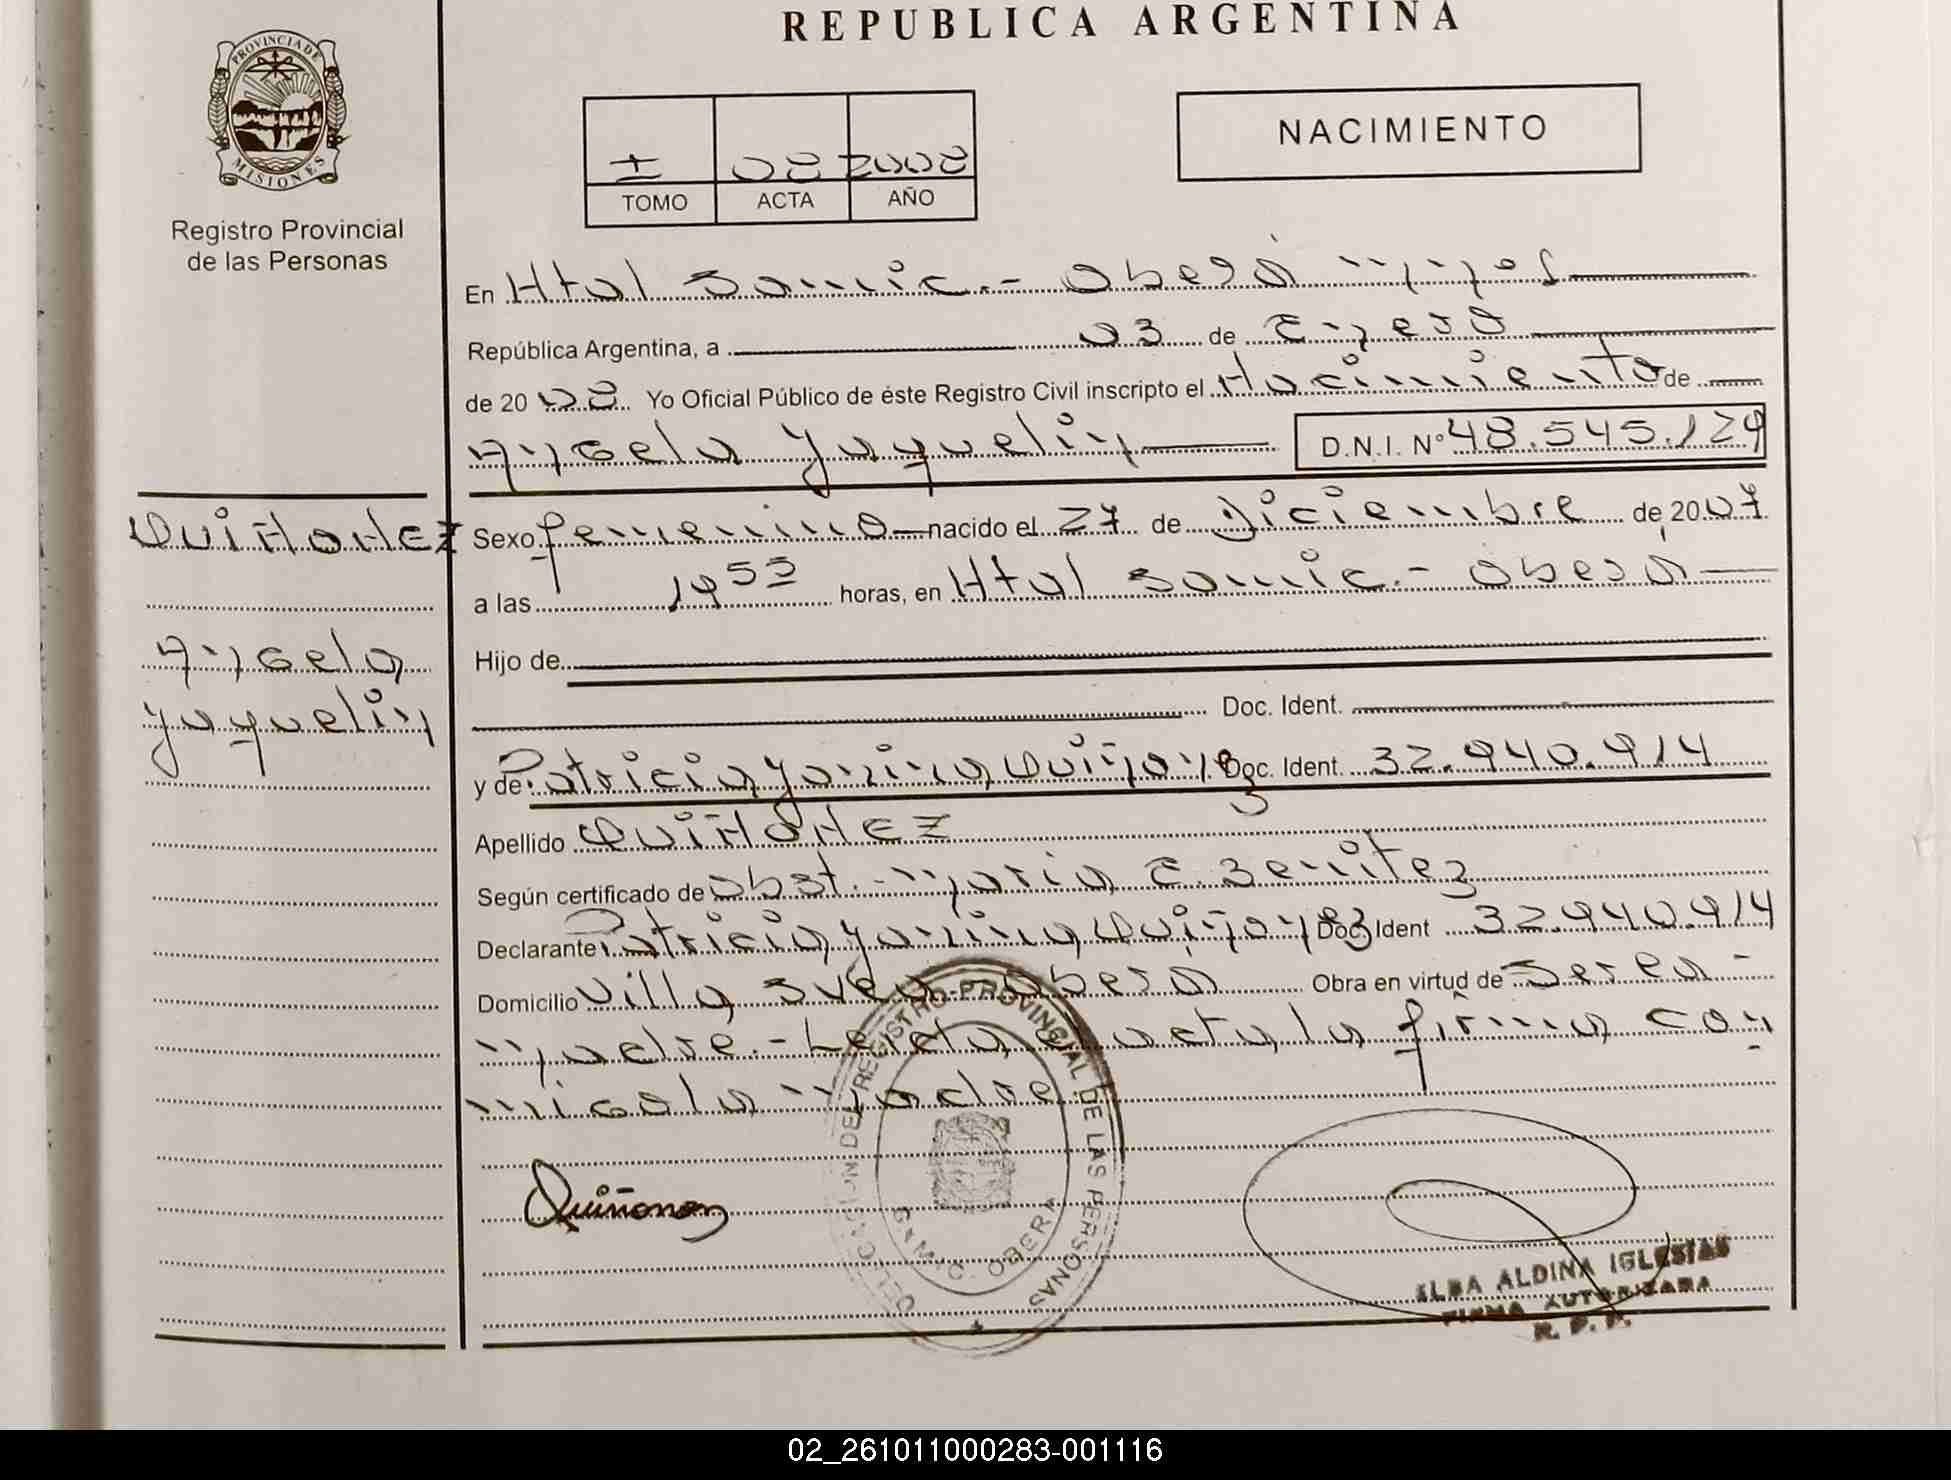 REPUBLICA ARGENTINA
PROVINCIA DE
MISIONES
Registro Provincial
de las Personas
I 08 2008
TOMO ACTA AÑO
NACIMIENTO
En Htal Samic.- Oberá Mnes
República Argentina, a 03 de Enero
de 2008 Yo Oficial Público de éste Registro Civil inscripto el Nacimiento de
Angela Yaquelin D.N.I. N° 48.545.129
QUIÑONEZ
Angela
Yaquelin
Sexo femenino nacido el 27 de Diciembre de 2007
a las 19 55 horas, en Htal Samic.- Oberá
Hijo de
Doc. Ident.
y de Patricia Yanina Quiñonez Doc. Ident. 32.940.914
Apellido QUIÑONEZ
Según certificado de Obst. Maria E. Benitez
Declarante Patricia Yanina Quiñonez Doc. Ident 32.940.914
Domicilio Villa Svea Oberá Obra en virtud de Ser la
madre.- Leida el acta, la firma con
migo la madre
Quiñonez
DELEGACION DEL REGISTRO PROVINCIAL DE LAS PERSONAS
SAMIC OBERA
ELBA ALDINA IGLESIAS
FIRMA AUTORIZADA
R. P. P.
02_261011000283-001116